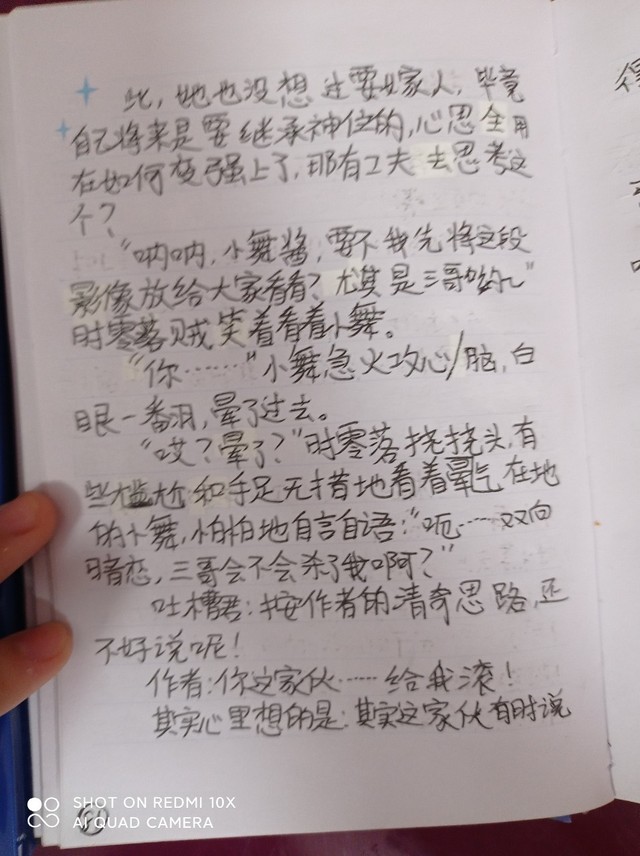 些，她也没想过要嫁人，毕竟
自己将来是要继承神位的，心思全用
在如何变强上了，那有工夫去思考这
个？
“呐呐，小舞酱，要不我先将这段
影像放给大家看看？尤其是三哥哟~”
时零落贼笑着看着小舞。
“你……”小舞急火攻心/脑，白
眼一番羽，晕了过去。
“哎？晕了？”时零落挠挠头，有
些尴尬和手足无措地看着晕在地
的小舞，怕怕地自言自语：“呃……双向
暗恋，三哥会不会杀了我啊？”
吐槽君：按作者的清奇思路，还
不好说呢！
作者：你这家伙……给我滚！
其实心里想的是：其实这家伙有时说
得
SHOT ON REDMI 10X
AI QUAD CAMERA